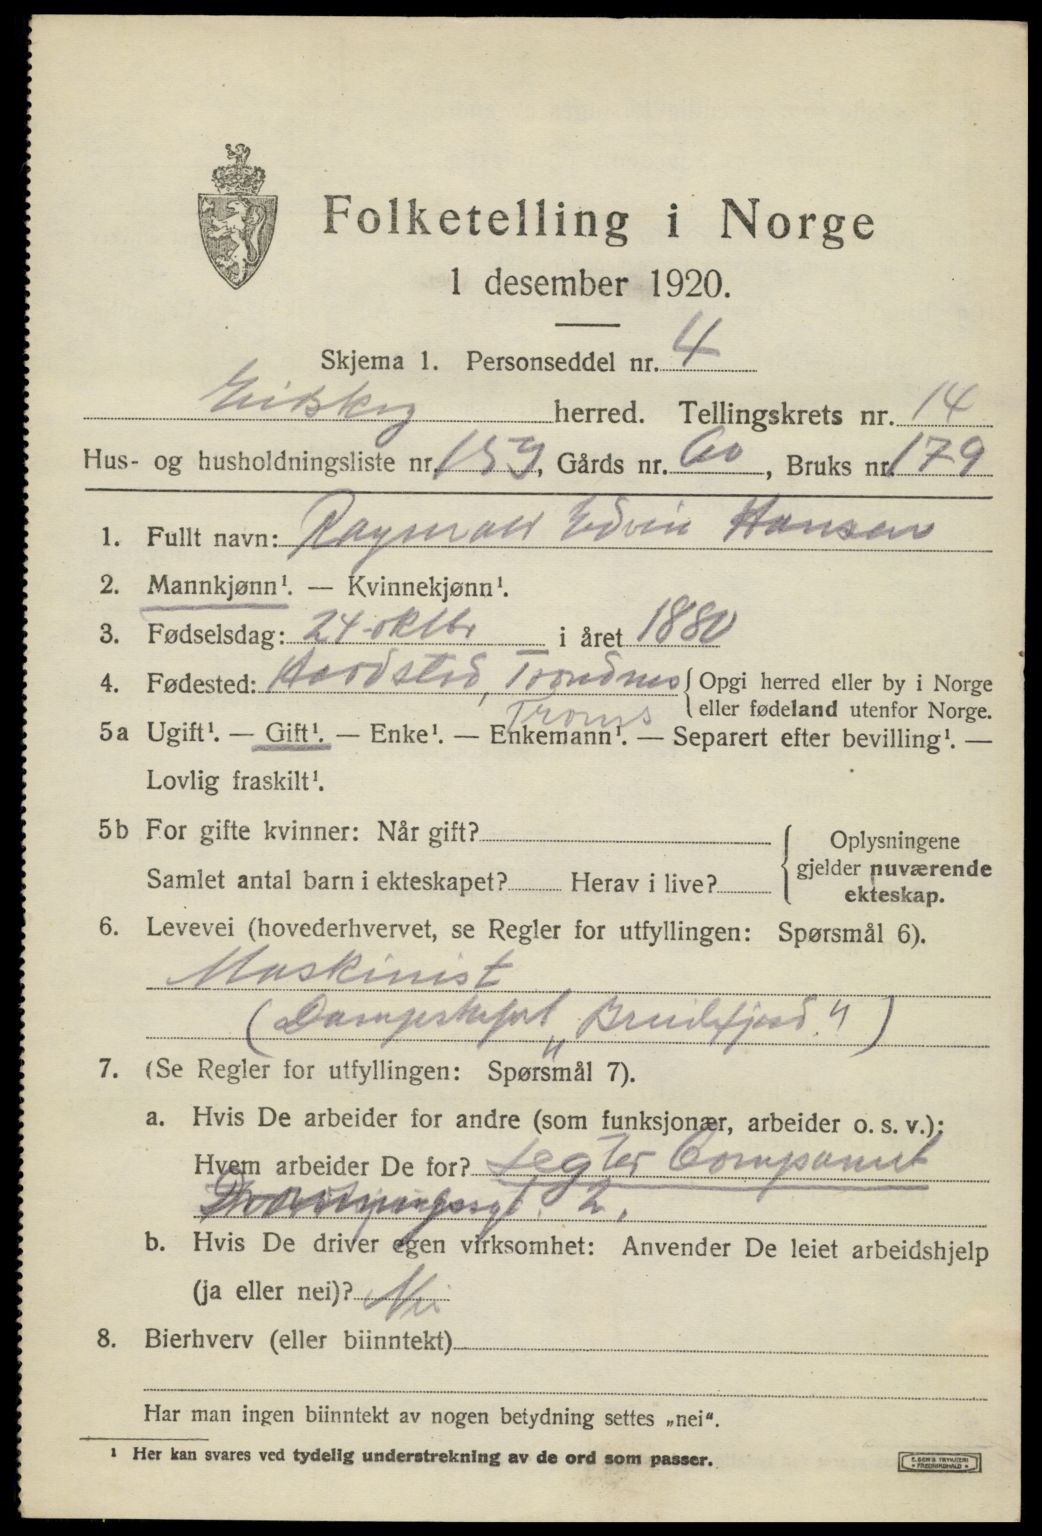 Folketelling i Norge
1 desember 1920.
Skjema 1. Personseddel nr. 4
Eidskog herred. Tellingskrets nr. 14
Hus- og husholdningsliste nr. 159, Gårds nr. 60, Bruks nr. 179
1. Fullt navn: Raynvald Edvin Hansen
2. Mannkjønn¹. — Kvinnekjønn¹.
3. Fødselsdag: 24 oktbr i året 1880
4. Fødested: Hardsted, Trondnes { Opgi herred eller by i Norge
Troms eller fødeland utenfor Norge.
5a Ugift¹. — Gift¹. — Enke¹. — Enkemann¹. — Separert efter bevilling¹. —
Lovlig fraskilt¹.
5b For gifte kvinner: Når gift? Oplysningene
gjelder nuværende
Samlet antal barn i ekteskapet? Herav i live? ekteskap.
6. Levevei (hovederhvervet, se Regler for utfyllingen: Spørsmål 6).
Maskinist
(Dampskibet „Breidefjord")
7. (Se Regler for utfyllingen: Spørsmål 7).
a. Hvis De arbeider for andre (som funksjonær, arbeider o. s. v.):
Hvem arbeider De for? Companiet
2.
b. Hvis De driver egen virksomhet: Anvender De leiet arbeidshjelp
(ja eller nei)? Nei
8. Bierhverv (eller biinntekt)
Har man ingen biinntekt av nogen betydning settes „nei".
¹ Her kan svares ved tydelig understrekning av de ord som passer.
E. SEM'S TRYKKERI
• FREDRIKSHALD •